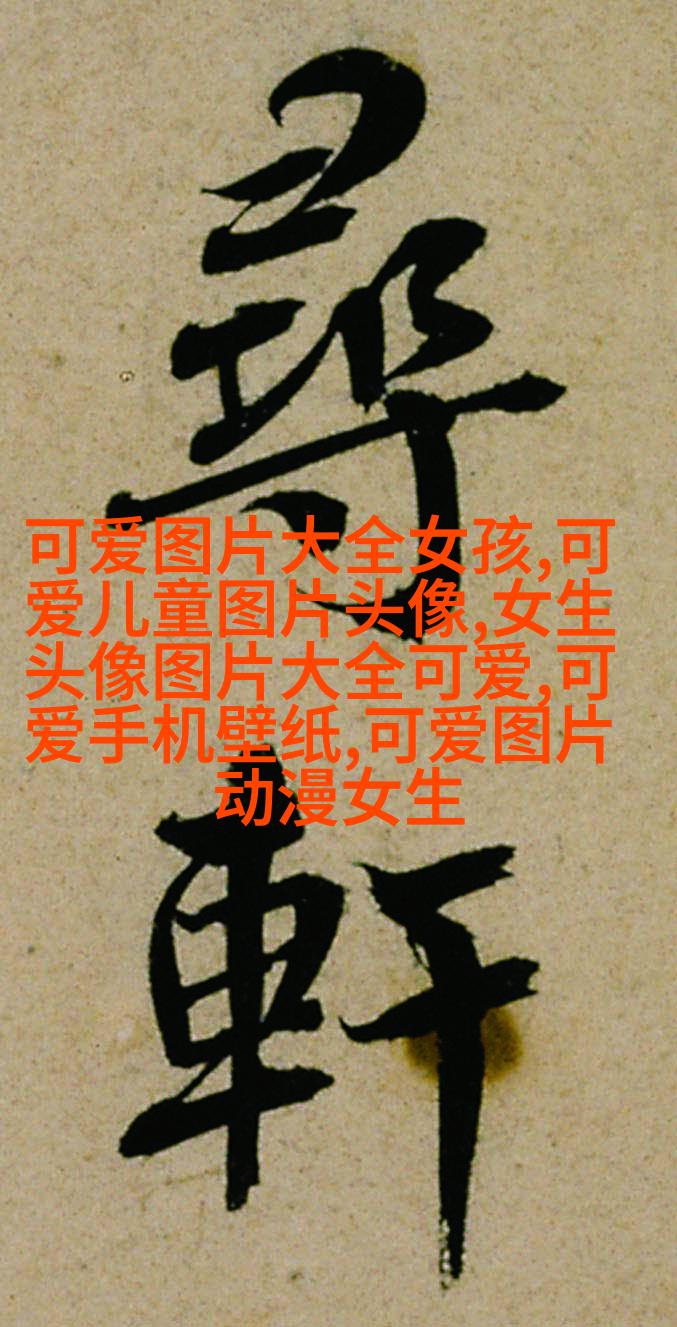 尋
軒
可爱图片大全女孩,可
爱儿童图片头像,女生
头像图片大全可爱,可
爱手机壁纸,可爱图片
动漫女生